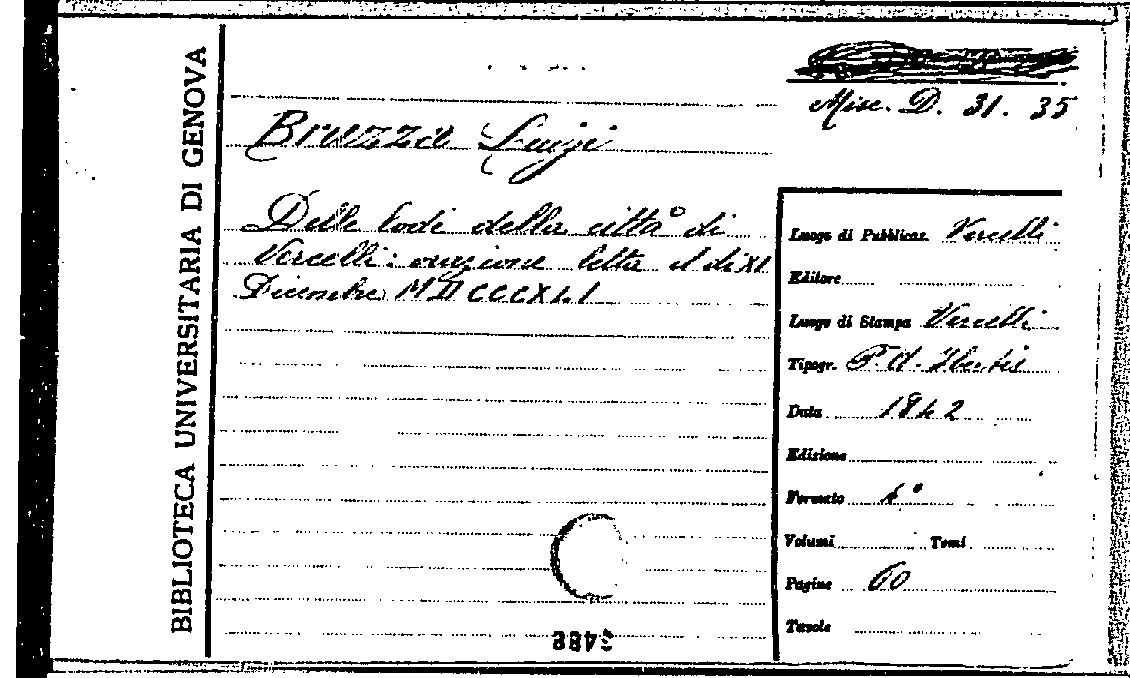 BIBLIOTECA UNIVERSITARIA DI GENOVA
Misc. D. 31. 35
Bruzza Luigi
Delle lodi della città di
Vercelli: orazione letta il dì XI
Dicembre MDCCCXLI
Luogo di Pubblicaz. Vercelli
Editore
Luogo di Stampa Vercelli
Tipogr. P. A. Ibertis
Data 1842
Edizione
Formato 4°
Volumi Tomi
Pagine 60
Tavole